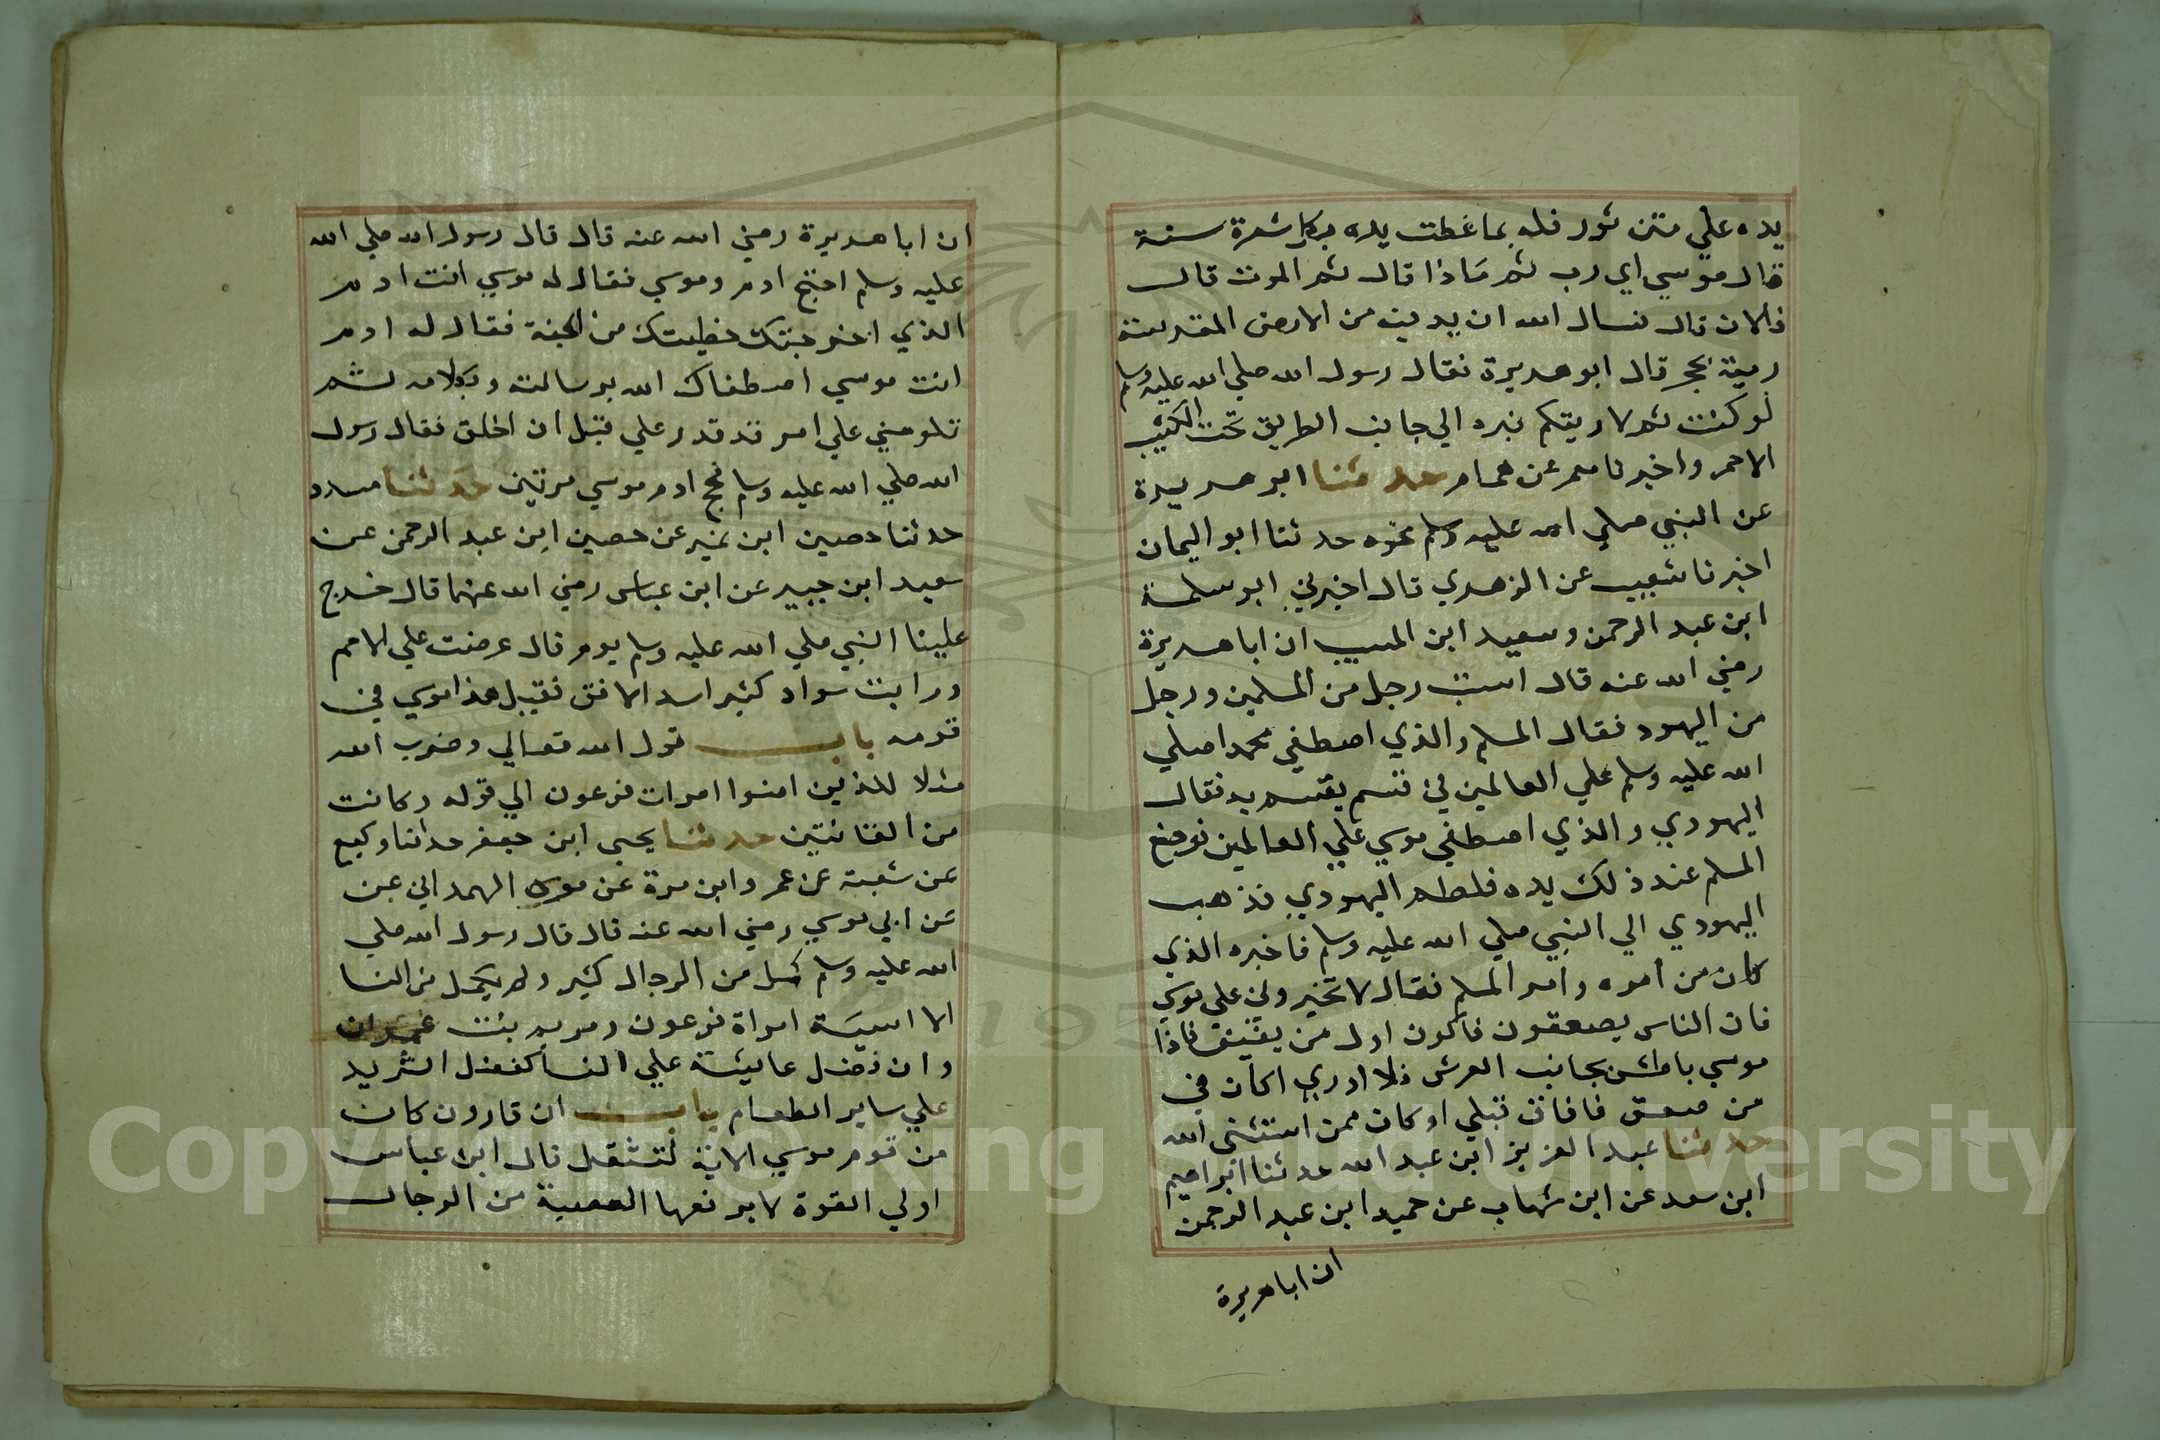 يده علي متن ثور فله بما غطت يده بكل شعرة سنة
قال موسي اي رب ثم ماذا قال ثم الموت قال
فالان قال فسال الله ان يدينه من الارض المقدسة
رمية بحجر قال ابو هديرة فقال رسول الله صلي الله عليه وسلم
لو كنت ثم لاريتكم قبره الي جانب الطريق تحت الكثيب
الاحمر واخبرنا معمر عن همام حدثنا ابو هريرة
عن النبي صلي الله عليه وسلم نحوه حدثنا ابو اليمان
اخبرنا شعيب عن الزهري قال اخبرني ابو سلمة
ابن عبد الرحمن وسعيد ابن المسيب ان ابا هريرة
رضي الله عنه قال استب رجل من المسلمين ورجل
من اليهود فقال المسلم والذي اصطفي محمدا صلي
الله عليه وسلم علي العالمين في قسم يقسم به فقال
اليهودي والذي اصطفي موسي علي العالمين فوضع
المسلم عند ذلك يده فلطم اليهودي فذهب
اليهودي الي النبي صلي الله عليه وسلم فاخبره الذي
كان من امره وامر المسلم فقال لا تخيروني علي موسي
فان الناس يصعقون فاكون اول من يفيق فاذا
موسي باطش بجانب العرش فلا ادري اكان في
من صعق فافاق قبلي او كان ممن استثني الله
حدثنا عبد العزيز ابن عبد الله حدثنا ابراهيم
ابن سعد عن ابن شهاب عن حميد ابن عبد الرحمن
ان ابا هريرة
ان ابا هديرة رضي الله عنه قال قال رسول الله صلي الله
عليه وسلم احتج ادم وموسي فقال له موسي انت ادم
الذي اخرجتك خطيتك من الجنة فقال له ادم
انت موسي اصطفاك الله برسالته وبكلامه ثم
تلومني علي امر قد قدر علي قبل ان اخلق فقال رسول
الله صلي الله عليه وسلم فحج ادم موسي مرتين حدثنا مسدد
حدثنا حصين ابن نمير عن حصين ابن عبد الرحمن عن
سعيد ابن جبير عن ابن عباس رضي الله عنهما قال خرج
علينا النبي صلي الله عليه وسلم يوم قال عرضت علي الامم
ورايت سواد كثيرا سد الافق فقيل هذا موسي في
قومه باب قول الله تعالي وضرب الله
مثلا للذين امنوا امرات فرعون الي قوله وكانت
من القانتين حدثنا يحيي ابن جعفر حدثنا وكيع
عن شعبة عن عمرو ابن مرة عن مرة الهمداني عن
عن ابي موسي رضي الله عنه قال قال رسول الله صلي
الله عليه وسلم كمل من الرجال كثير ولم يكمل من النسا
الا اسية امراة فرعون ومريم بنت عمران
وان فضل عايشة علي النسا كفضل الثريد
علي ساير الطعام باب ان قارون كان
من قوم موسي الاية لتثقل قال ابن عباس
اولي القوة لا يرفعها العصبة من الرجال
Copyright © King Saud University
1957